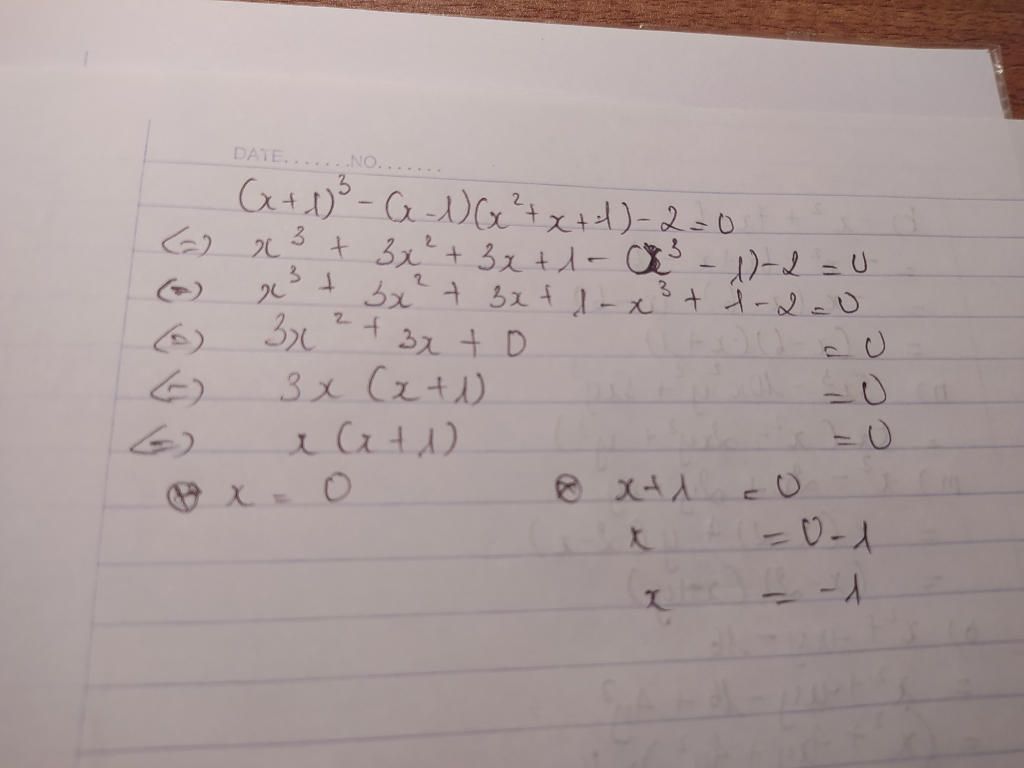 DATE.......NO.......
(x+1)³ - (x-1)(x²+x+1)-2=0
(=) x³ + 3x² + 3x + 1 - (x³ - 1)-2 =0
(=) x³ + 3x² + 3x + 1 - x³ + 1-2=0
(=) 3x² + 3x + 0 = 0
(=) 3x (x+1) =0
(=) x (x+1) =0
⊛ x = 0 ⊗ x+1 =0
x =0-1
x = -1